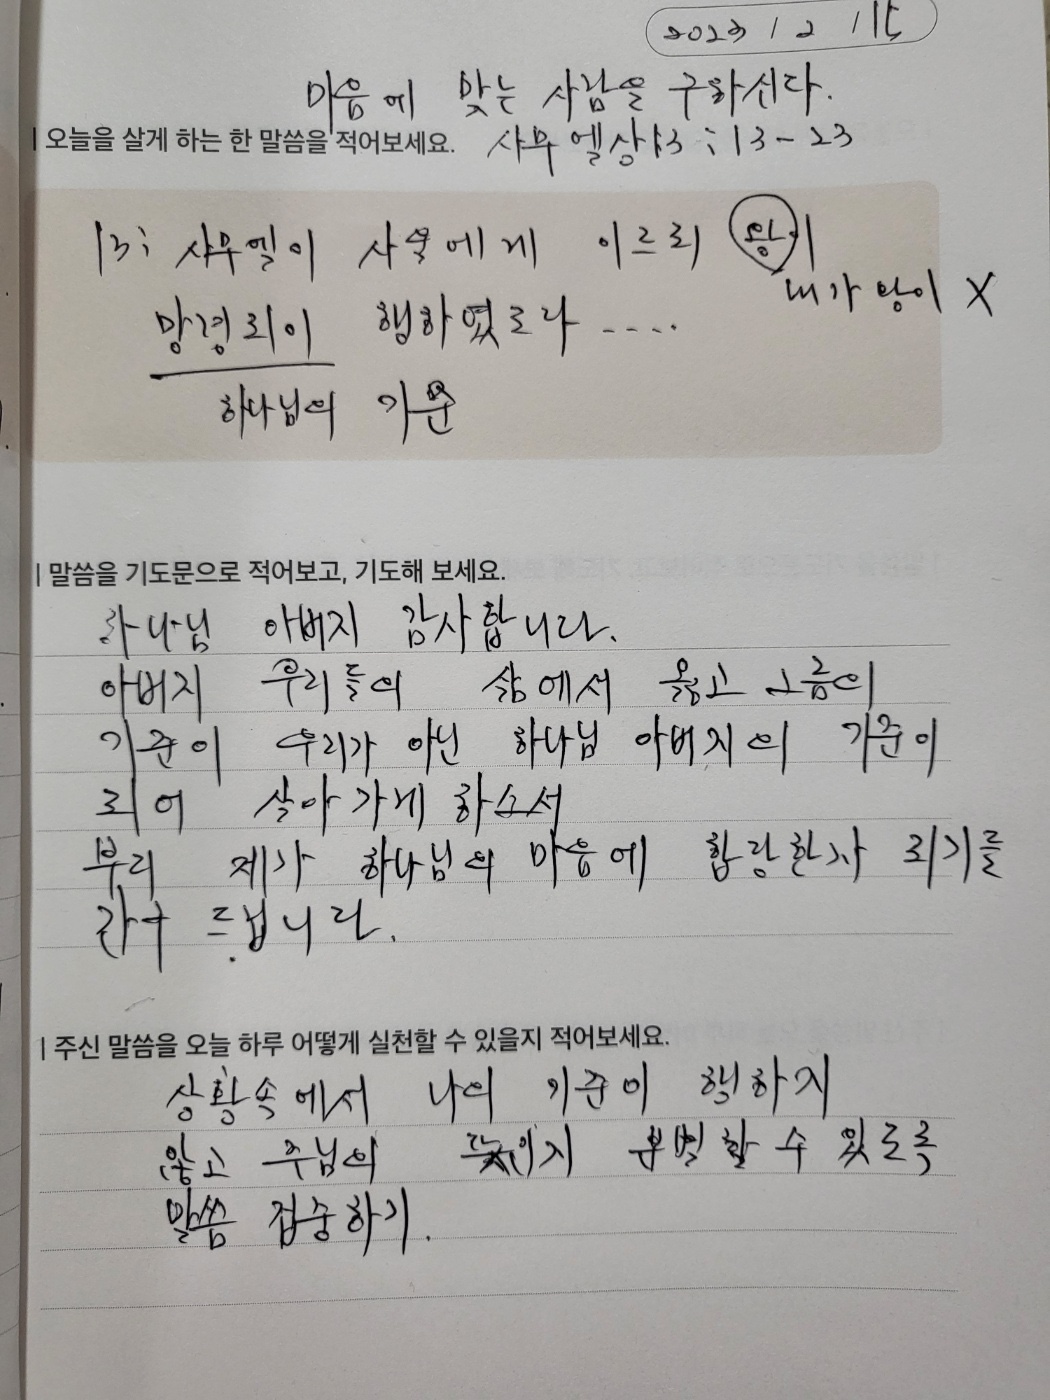 2023 / 2 /
마음에 맞는 사람을 구하신다.
| 오늘을 살게 하는 한 말씀을 적어보세요. 사무엘상13:13-23
13: 사무엘이 사울에게 이르되 왕이
내가 왕이 X
망령되이 행하였도다 ....
하나님의 기준
| 말씀을 기도문으로 적어보고, 기도해 보세요.
하나님 아버지 감사합니다.
아버지 우리들의 삶에서 옳고 그름의
기준이 우리가 아닌 하나님 아버지의 기준이
되어 살아가게 하소서
부디 제가 하나님의 마음에 합당한자 되기를
간구 드립니다.
| 주신 말씀을 오늘 하루 어떻게 실천할 수 있을지 적어보세요.
상황속에서 나의 기준이 행하지
않고 주님의 분별할 수 있도록
말씀 집중하기.